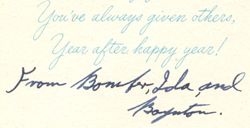 You've always given others,
Year after happy year!
From Bomfer, Ida and
Boynton.